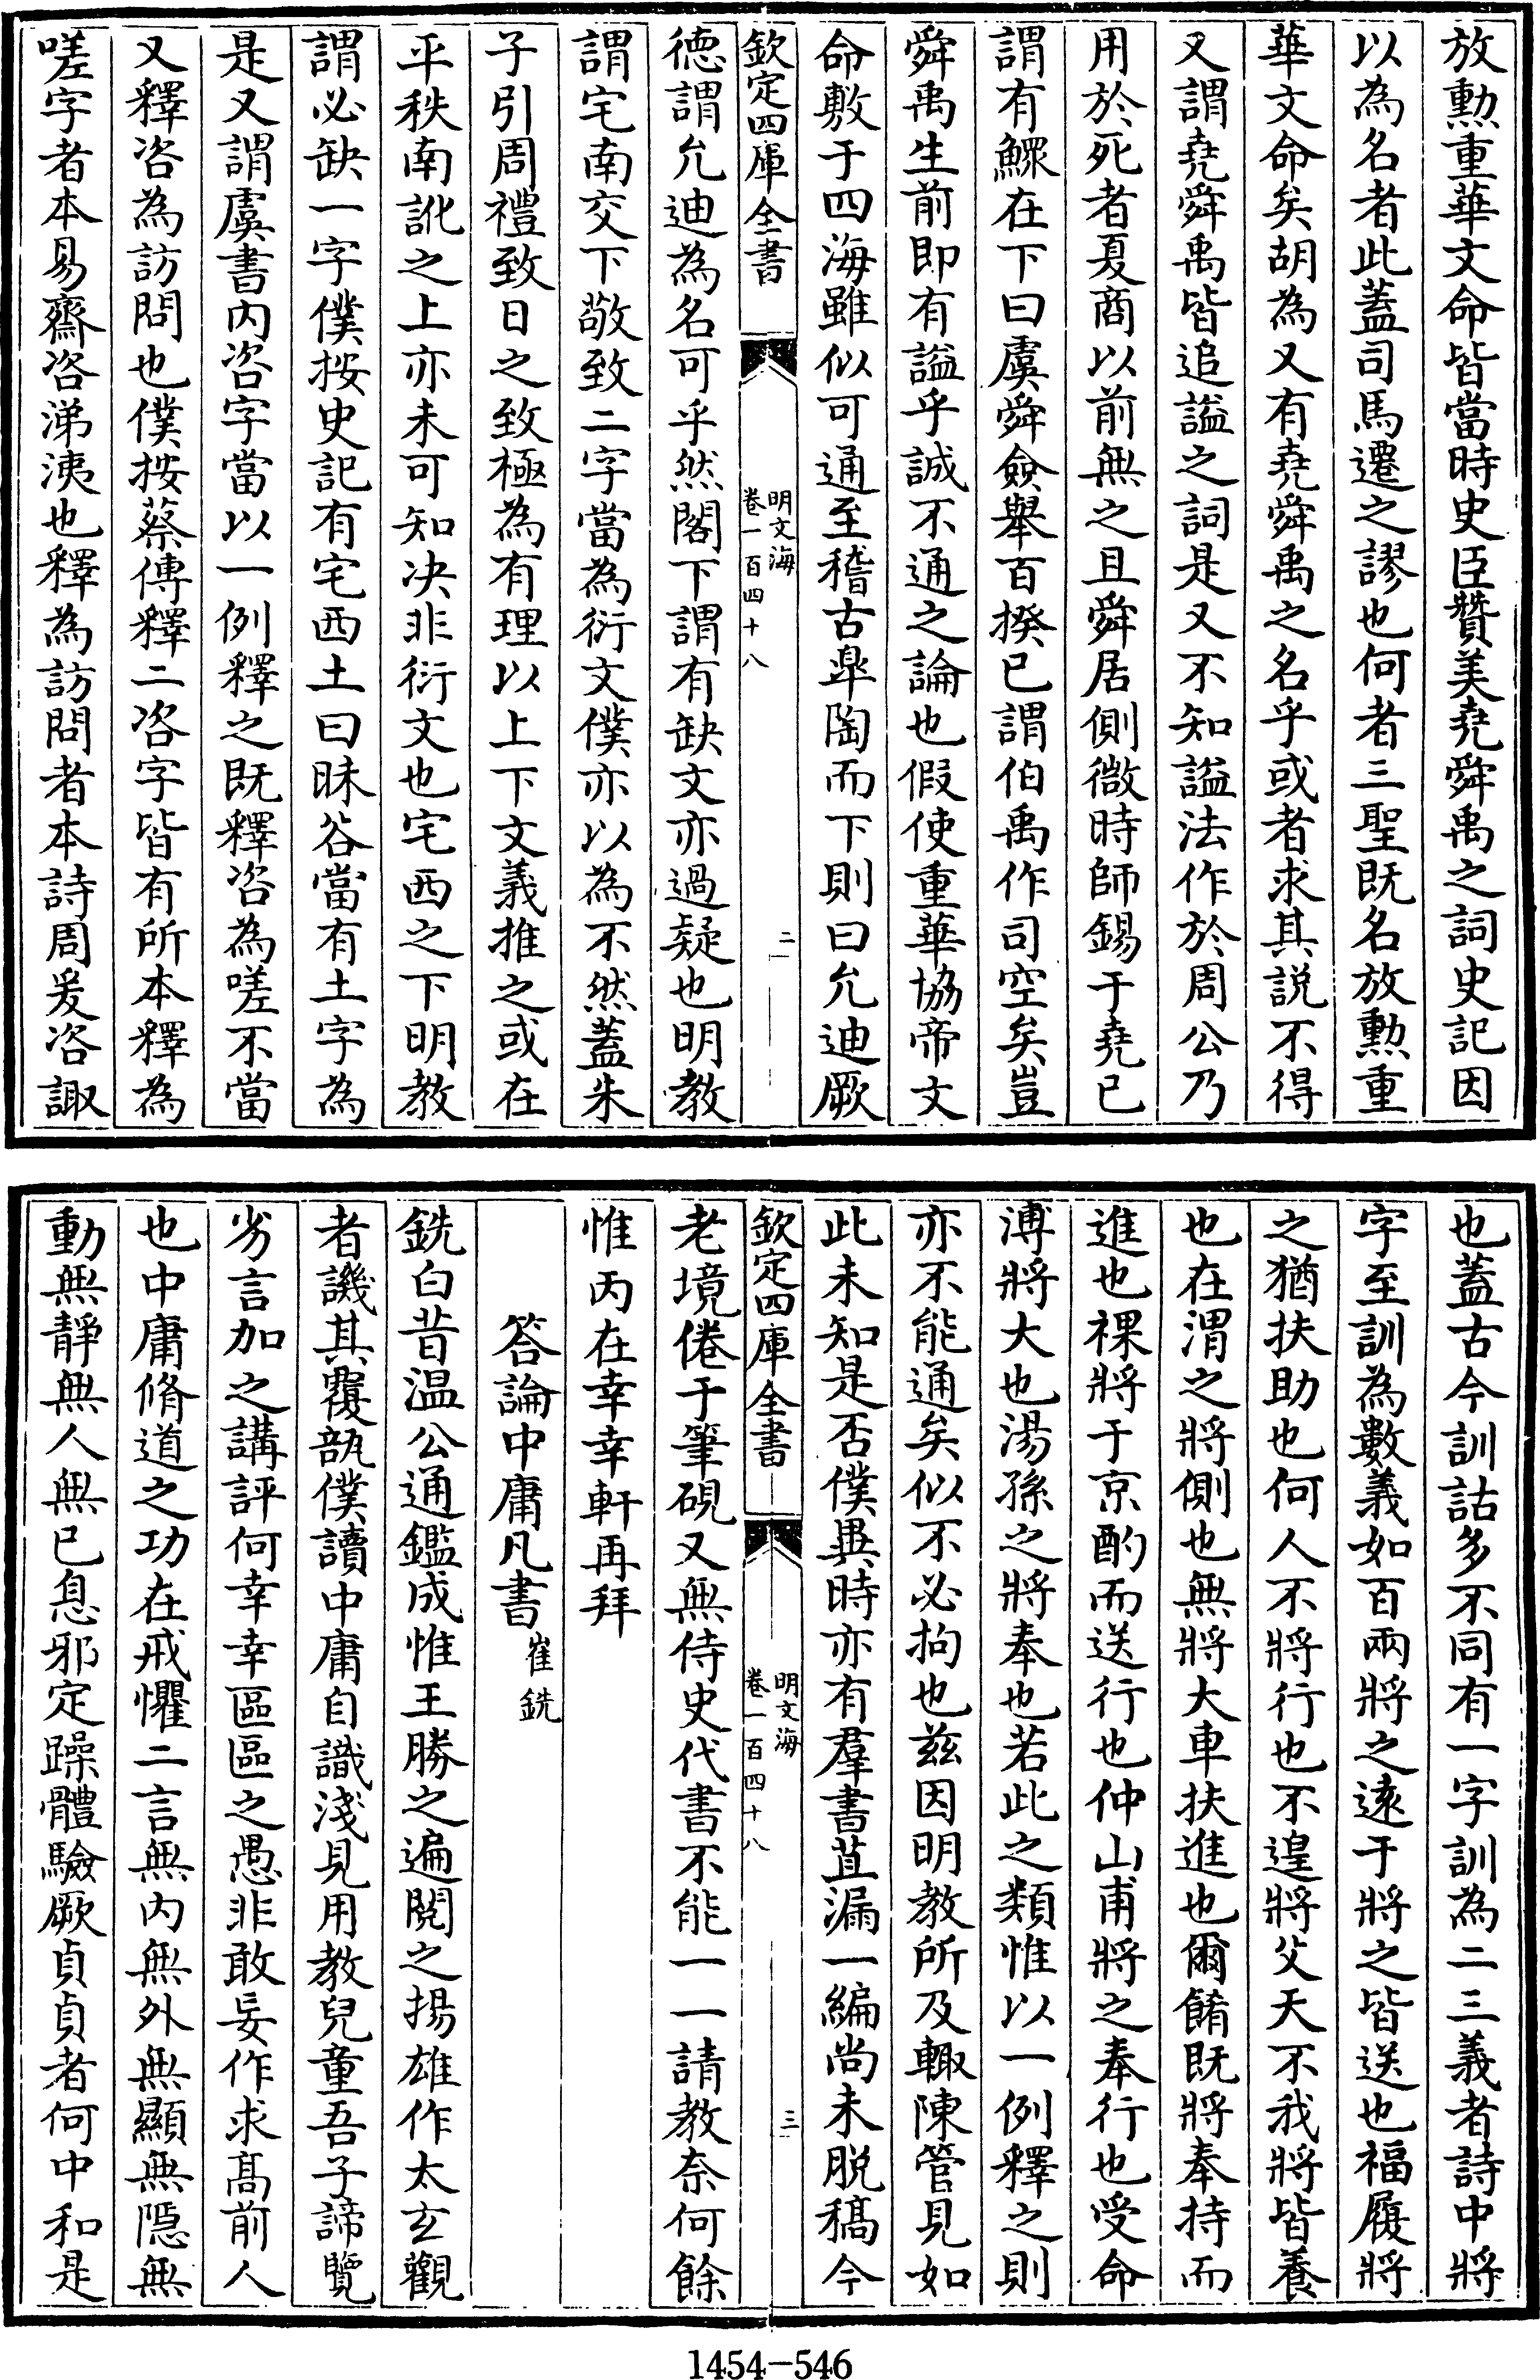 放勲重華文命皆當時史臣贊美堯舜禹之詞史記因
以為名者此蓋司馬遷之謬也何者三聖既名放勲重
華文命矣胡為又有堯舜禹之名乎或者求其説不得
又謂堯舜禹皆追諡之詞是又不知諡法作於周公乃
用於死者夏商以前無之且舜居側微時師錫于堯已
謂有鰥在下曰虞舜僉舉百揆已謂伯禹作司空矣豈
舜禹生前即有諡乎誠不通之論也假使重華協帝文
命敷于四海雖似可通至稽古臯陶而下則曰允迪厥
欽定四庫全書
明文海
卷一百四十八
二
德謂允迪為名可乎然閣下謂有缺文亦過疑也明教
謂宅南交下敬致二字當為衍文僕亦以為不然蓋朱
子引周禮致日之致極為有理以上下文義推之或在
平秩南訛之上亦未可知决非衍文也宅西之下明教
謂必缺一字僕按史記有宅西土曰昧谷當有土字為
是又謂虞書内咨字當以一例釋之既釋咨為嗟不當
又釋咨為訪問也僕按蔡傳釋二咨字皆有所本釋為
嗟字者本易齋咨涕洟也釋為訪問者本詩周爰咨諏
也蓋古今訓詁多不同有一字訓為二三義者詩中將
字至訓為數義如百兩將之遠于將之皆送也福履將
之猶扶助也何人不將行也不遑將父天不我將皆養
也在渭之將側也無將大車扶進也爾餚既將奉持而
進也祼將于京酌而送行也仲山甫將之奉行也受命
溥將大也湯孫之將奉也若此之類惟以一例釋之則
亦不能通矣似不必拘也兹因明教所及輙陳管見如
此未知是否僕異時亦有羣書苴漏一編尚未脱稿今
欽定四庫全書
明文海
卷一百四十八
三
老境倦于筆硯又無侍史代書不能一一請教奈何餘
惟丙在幸幸軒再拜
答論中庸凡書 崔銑
銑白昔温公通鑑成惟王勝之遍閲之揚雄作太玄觀
者譏其覆瓿僕讀中庸自識淺見用教兒童吾子諦覽
劣言加之講評何幸幸區區之愚非敢妄作求髙前人
也中庸脩道之功在戒懼二言無内無外無顯無隠無
動無靜無人無已息邪定躁體驗厥貞貞者何中和是
1454-546